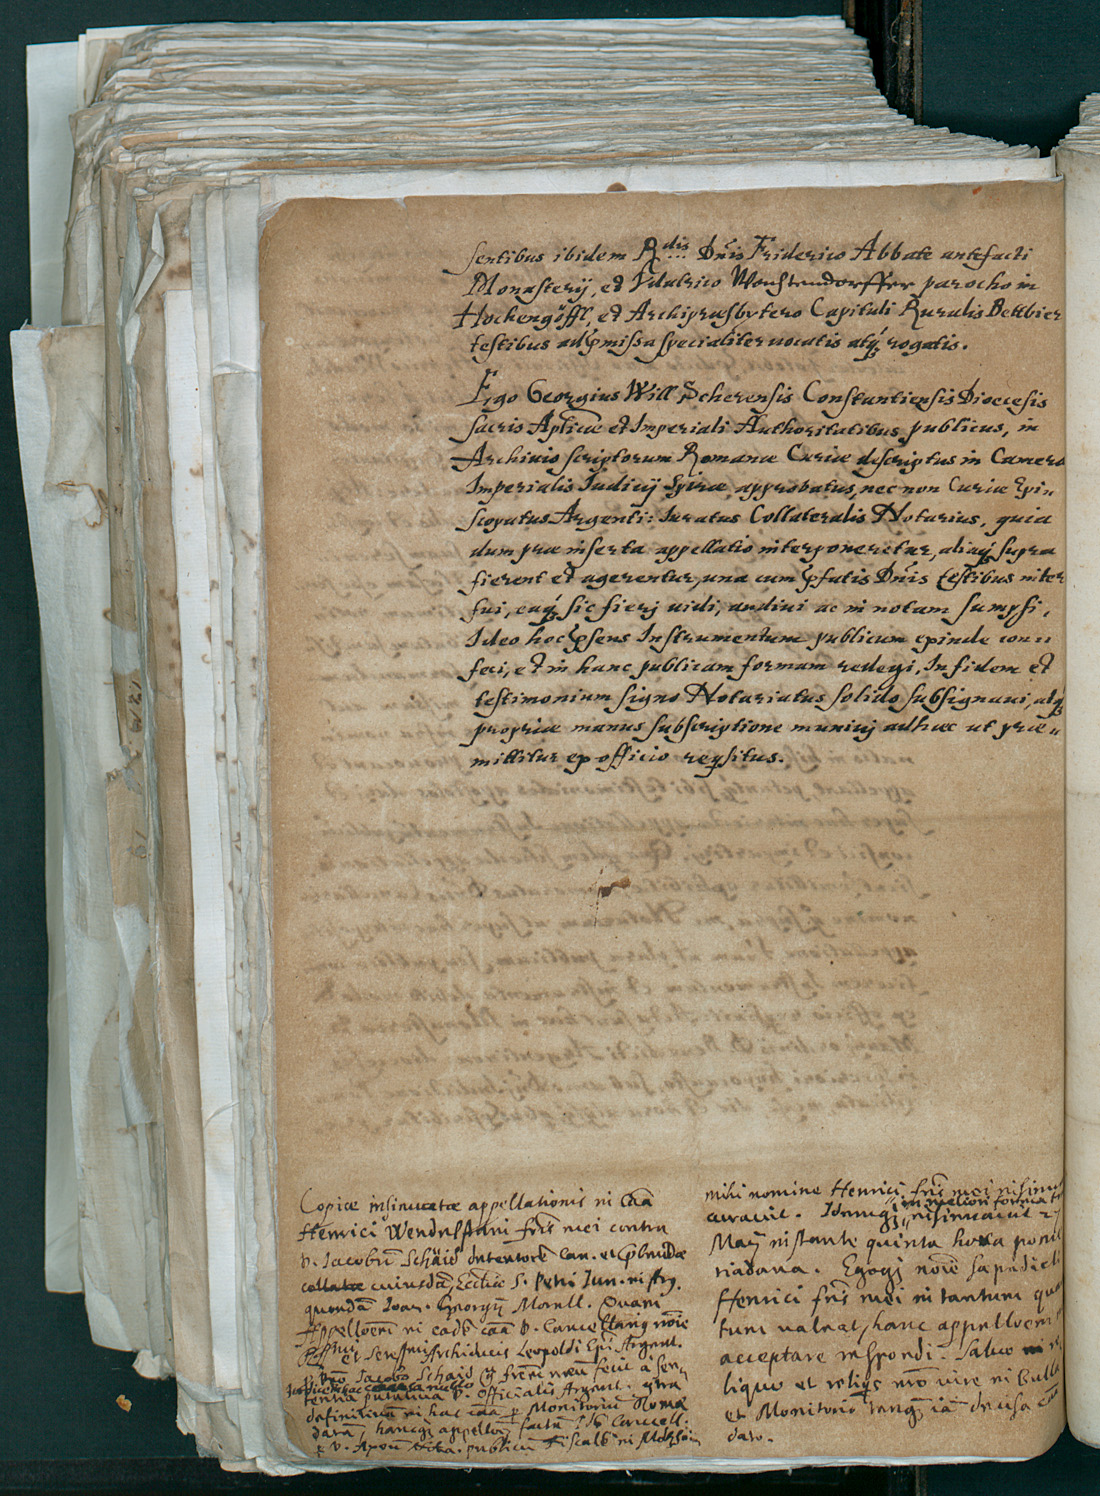 sentibus ibidem R.dis Dnis Friderico Abbate antefacti
Monasterij, et Vdalrico parocho in
Hochengöfft, et Archipræsbytero Capituli Ruralis Bettbier
testibus ad pmissa specialiter uocatis atq; rogatis.
Ego Georgius Will Scherensis Constantiensis Diœcesis
sacris Aplica et Imperiali Authoritatibus publicus, in
Archiuio scriptorum Romanæ Curiæ descriptus in Camera
Imperialis Iudicij Spiræ approbatus, nec non Curiæ Epi„
scopatus Argenti: Iuratus Collateralis Notarius, quia
dum præinserta appellatio interponeretur, aliaq; supra
fierent et agerentur, una cum pfatis Dnis testibus inter
fui, eaq; sic fierj uidi, audiui ac in notam sumpsi,
Ideo hoc psens Instrumentum publicum exinde con
feci, et in hanc publicam formam redegi, In fidem et
testimonium signo Notariatus solido subsignaui, atq;
propriæ manus subscriptione muniuj adhæc ut præ„
mittitur ex officio reqsitus.
Copiæ insinuatæ appellationis in caa
Henrici Wendelstani fris mei contra
D. Jacobu Schaid detentore Can. et Pbendæ
collatæ cuiusda Ecclie S. Petri Iun.
quonda Ioan. Georgij Morell. Quam
Appelloem in eade caa D. Cancellarij noie
et Sereniss. Archiducis Leopoldi Epi Argent.
Jacobo Schaid frem meu sen
tentia putatiua D. Officialis Argent.
definitiua in hac caa p Monitoriu Roma
datam, hancq; appelloem facta Cancell.
publicu Fiscale in
mihi nomine Henrici fris mei
in meliori forma
curauit. Idemq; insinuauit 27
Maij instante quinta hora pome
ridiana. Egoq; noie sapedicti
Henrici fris mei in tantum qua
tum ualeat, hanc appelloem
acceptare respondi. Saluo in
liquo et reliqs nro iure in bulla
et Monitorio tanq ia decisa caa
dato.